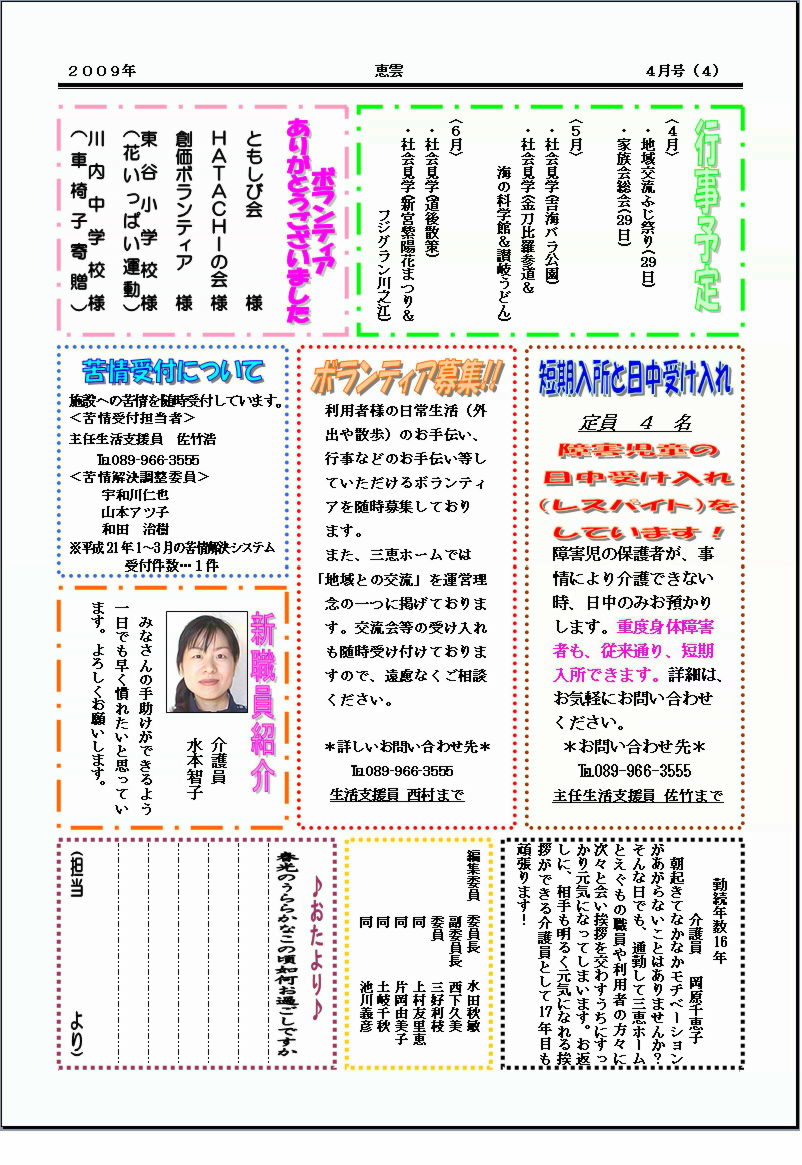 ２００９年
恵雲
４月号（４）
行事予定
〈４月〉
・地域交流ふじ祭り(29日)
・家族会総会(29日)
〈５月〉
・社会見学(吉海バラ公園)
・社会見学(金刀比羅参道＆
海の科学館＆讃岐うどん)
〈６月〉
・社会見学(道後散策)
・社会見学(新宮紫陽花まつり＆
フジグラン川之江)
ボランティア
ありがとうございました
ともしび会　様
ＨＡＴＡＣＨＩの会　様
創価ボランティア　様
東谷小学校様
（花いっぱい運動）
川内中学校様
（車椅子寄贈）
短期入所と日中受け入れ
定員　４　名
障害児童の
日中受け入れ
（レスパイト）を
しています！
障害児の保護者が、事
情により介護できない
時、日中のみお預かり
します。重度身体障害
者も、従来通り、短期
入所できます。詳細は、
お気軽にお問い合わせ
ください。
＊お問い合わせ先＊
℡089-966-3555
主任生活支援員 佐竹まで
ボランティア募集!!
利用者様の日常生活（外
出や散歩）のお手伝い、
行事などのお手伝い等し
ていただけるボランティ
アを随時募集しており
ます。
また、三恵ホームでは
「地域との交流」を運営理
念の一つに掲げておりま
す。交流会等の受け入れ
も随時受け付けておりま
すので、遠慮なくご相談
ください。
＊詳しいお問い合わせ先＊
℡089-966-3555
生活支援員 西村まで
苦情受付について
施設への苦情を随時受付しています。
＜苦情受付担当者＞
主任生活支援員　佐竹浩
℡089-966-3555
＜苦情解決調整委員＞
宇和川仁也
山本アツ子
和田　治樹
※平成21年1～3月の苦情解決システム
受付件数…１件
新職員紹介
介護員
水本智子
みなさんの手助けができるよう
一日でも早く慣れたいと思ってい
ます。よろしくお願いします。
勤続年数16年
介護員　岡原千恵子
朝起きてなかなかモチベーション
があがらないことはありませんか？
そんな日でも、通勤して三恵ホーム
とえぐもの職員や利用者の方々に
次々と会い挨拶を交わすうちにすっ
かり元気になってしまいます。お返
しに、相手も明るく元気になれる挨
拶ができる介護員として17年目も
頑張ります！
編集委員　委員長　水田秋敏
副委員長　西下久美
委員　三好利枝
同　上村友里恵
同　片岡由美子
同　土岐千秋
同　池川義彦
♪おたより♪
春光のうららかなこの頃如何お過ごしですか
（担当　より）